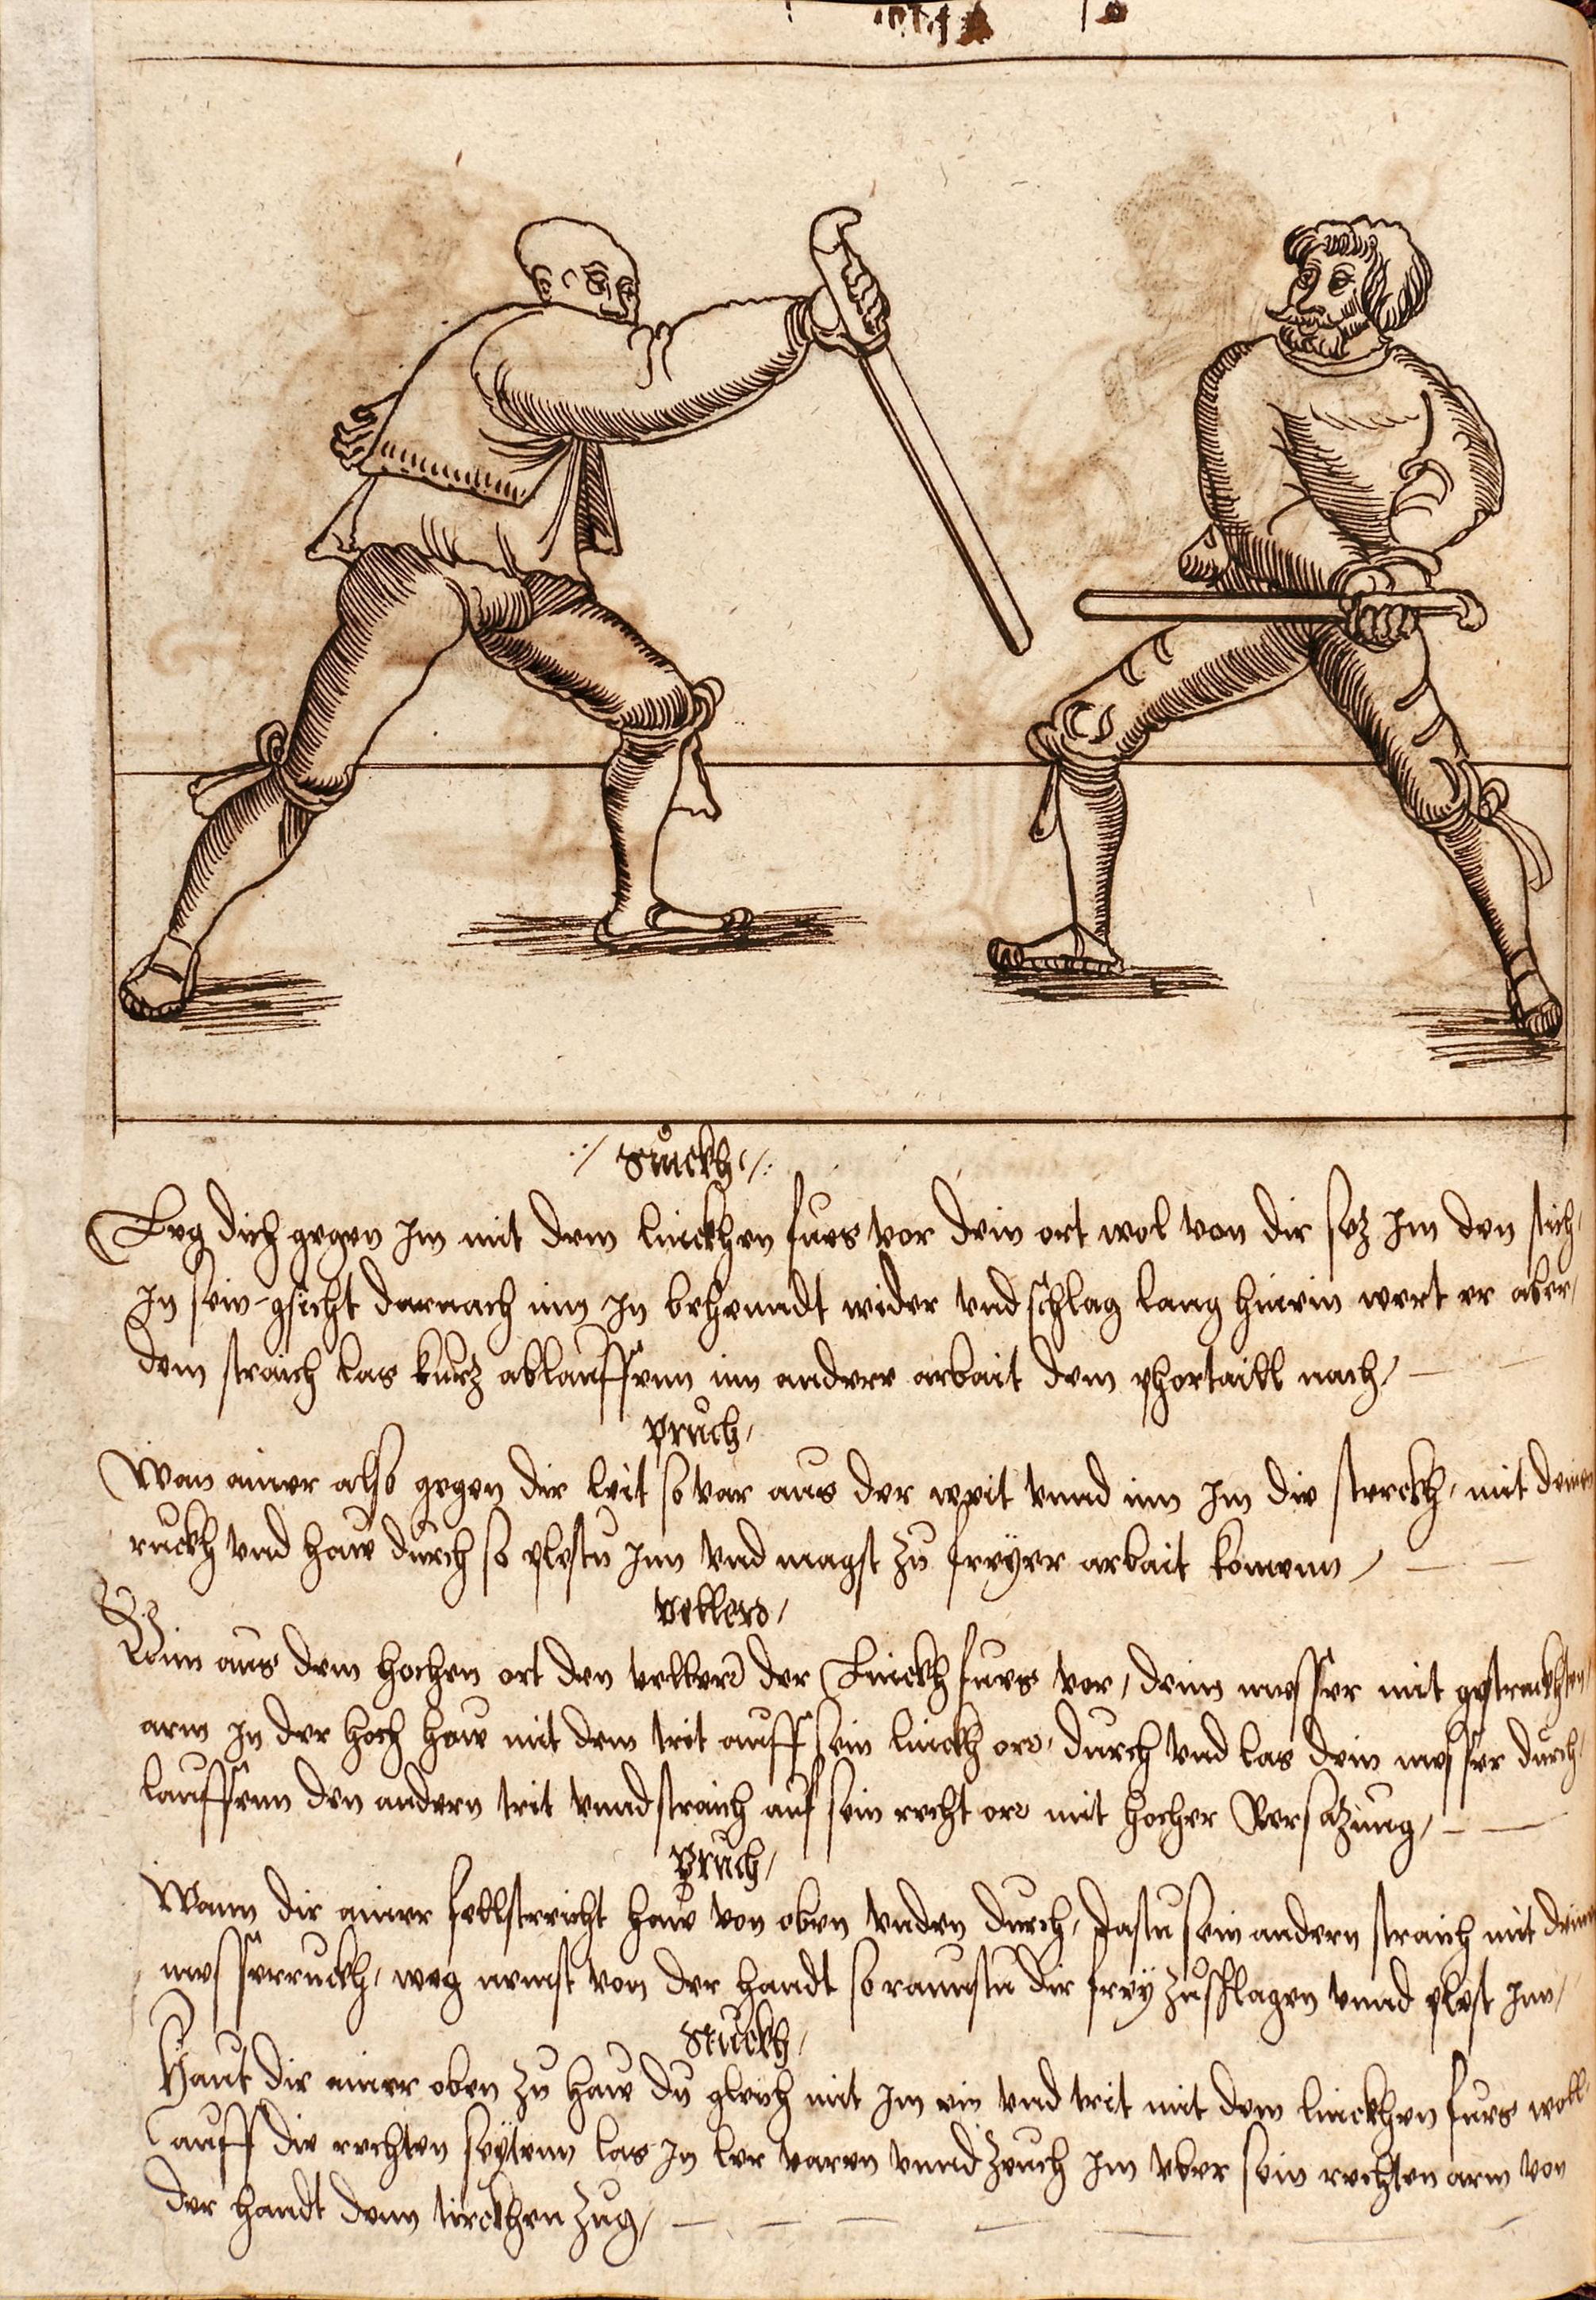 :/ stuckh /:
Leg dich gegen Im mit dem linckhen fues vor dein ort wol von dir sez Im den stich
In sein gsicht darnach nim In behenndt wider vnd schlag lang hinein wert er aber
dem straich las kurz ablauffenn nim andere arbait dem phortaill nach /
pruch /
Wan ainer also gegen dir leit so var aus der weit vnnd nim Im die sterckh / mit deinem
ruckh vnd haw durch so plestu Inn vnd magst zu freyer arbait komenn /
vellers /
Nim aus dem hochen ort den vellers der Linckh fues vor / deim messer mit gestrackhten
arm In der hoch haw mit dem trit auff sein linckh ore durch vnd las dein messer durch
lauffenn den andern trit vnnd straich auf sein recht ore mit hocher Versazung /
pruch /
Wann dir ainer fellstreicht haw von oben vnden durch / dastu sein andern straich mit deinem
messerruckh / weg nemst von der handt so raumstu dir frey zuschlagen vnnd plest Inn /
stuckh /
Haut dir ainer oben zu haw du gleich mit Im ein vnd trit mit dem linckhen fues woll
auff die rechten seytenn las In ler varen vnnd zeuch Im vber sein rechten arm von
der handt denn tirckhen zug /